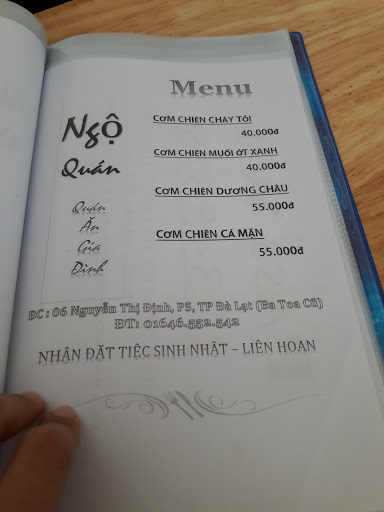 Menu
Ngộ
Quán
Quán
Ăn
Gia
Đình
CƠM CHIÊN CHÁY TỎI
40.000đ
CƠM CHIÊN MUỐI ỚT XANH
40.000đ
CƠM CHIÊN DƯƠNG CHÂU
55.000đ
CƠM CHIÊN CÁ MẶN
55.000đ
ĐC : 06 Nguyễn Thị Định, P5, TP Đà Lạt (Ba Toa Cũ)
ĐT: 01646.552.542
NHẬN ĐẶT TIỆC SINH NHẬT – LIÊN HOAN